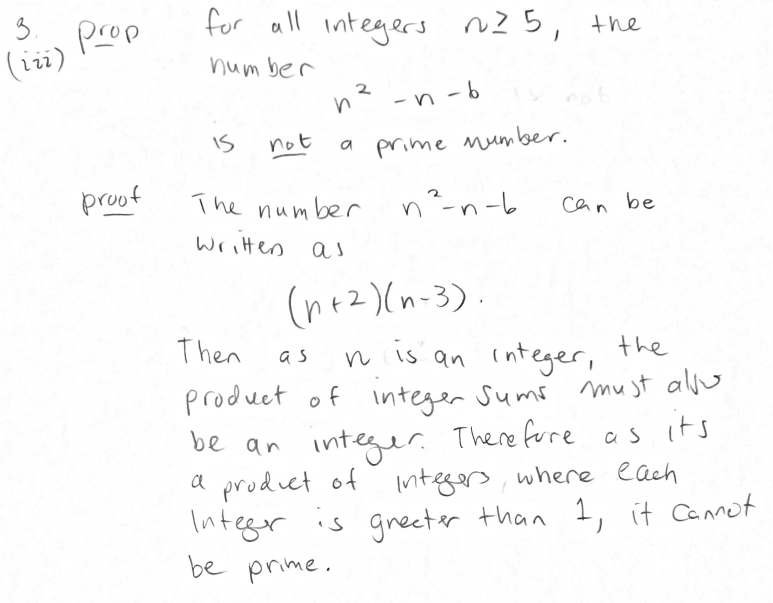 3. prop for all integers n ≥ 5, the
(iii) number
n² - n - 6
is not a prime number.
proof The number n² - n - 6 can be
written as
(n+2)(n-3).
Then as n is an integer, the
product of integer sums must also
be an integer. Therefore as its
a product of integers, where each
Integer is greater than 1, it cannot
be prime.